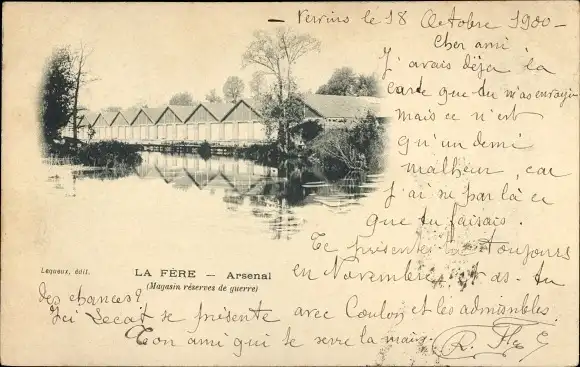 Vervins le 18 Octobre 1900 -
Cher ami
J'avais déjà la
carte que tu m'as envoyée
mais ce n'est
qu'un demi
malheur, car
j'ai su par là ce
que tu faisais.
Te présentes toujours
en Novembre as-tu
des chances?
Ici Lecat se présente avec Coulon et les admissibles.
Ton ami qui te serre la main.
Lequeux, édit.
LA FÈRE — Arsenal
(Magasin réserves de guerre)